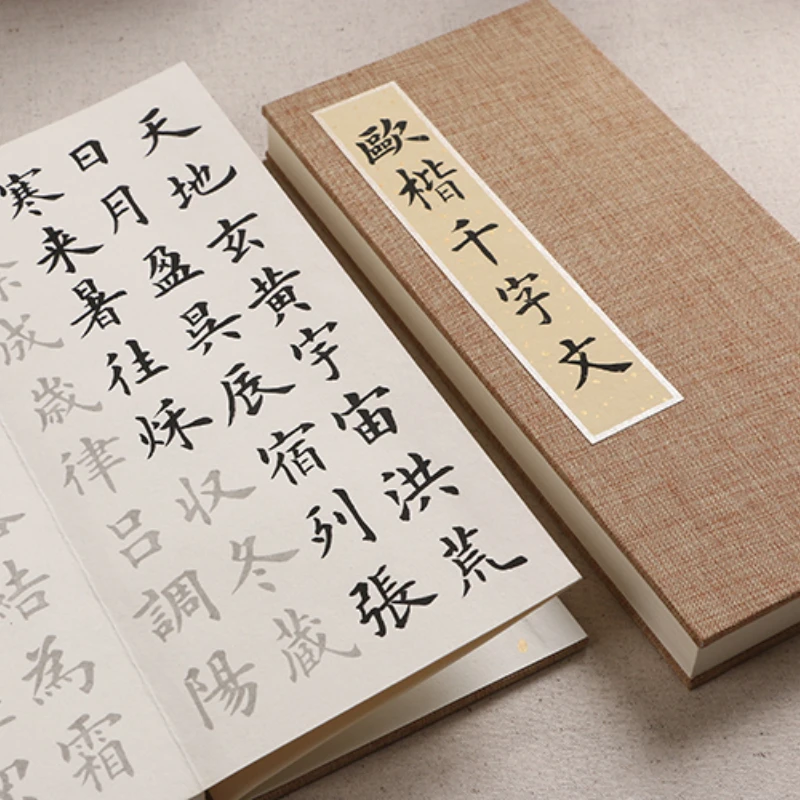 歐楷千字文
天地玄黄宇宙洪荒
日月盈昃辰宿列張
寒来暑往秋収冬蔵
余成歳律呂調陽
結為霜